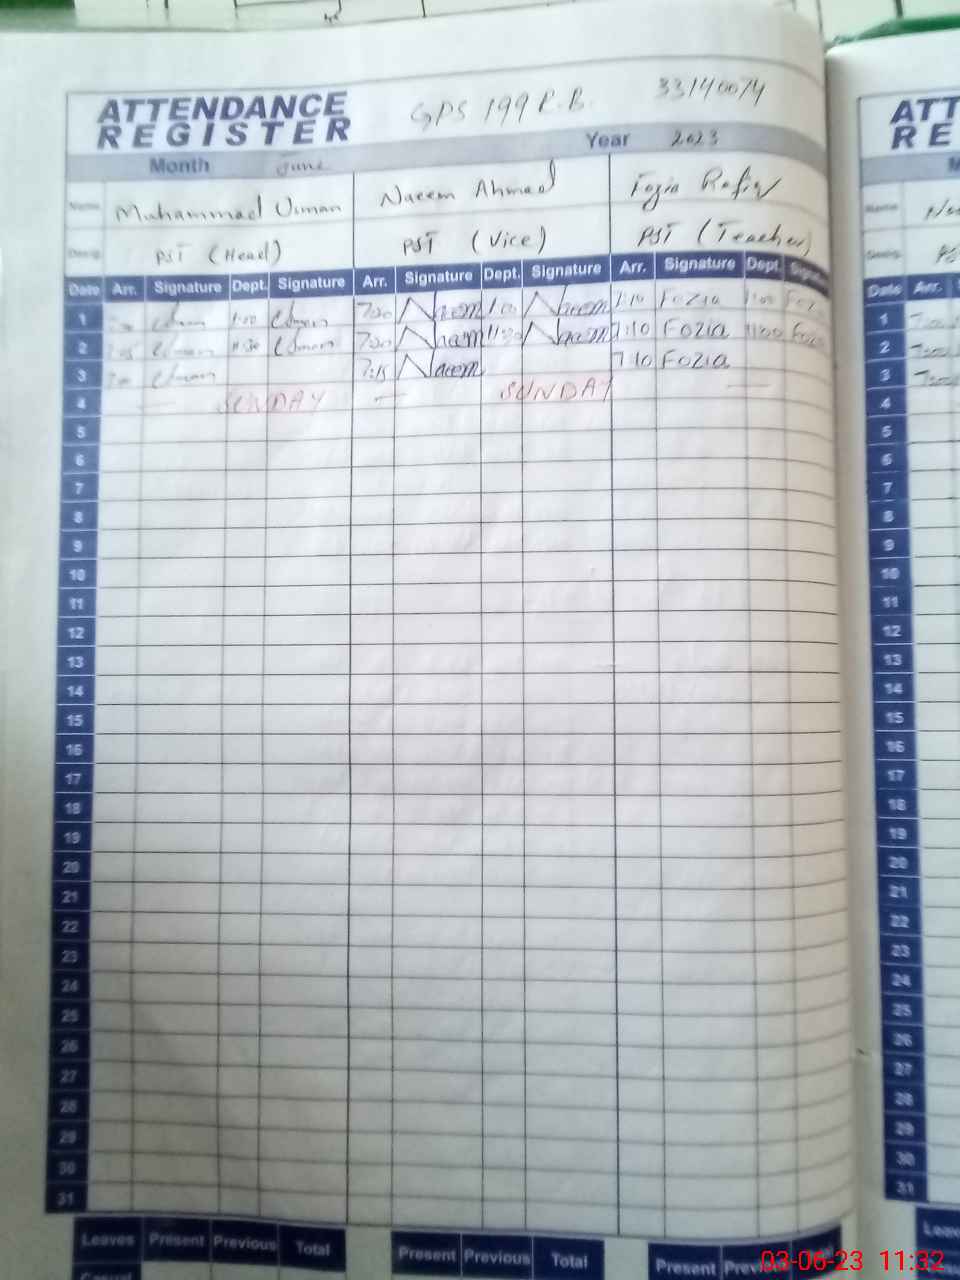 ATTENDANCE REGISTER
GPS 199 R.B. 33140074
Year 2023
Month June
Name Muhammad Usman Naeem Ahmad Fozia Rafiq
Desig. PST (Head) PST (Vice) PST (Teacher)
Date Arr. Signature Dept. Signature Arr. Signature Dept. Signature Arr. Signature Dept. Signature
1 7:00 Usman 1:00 Usman 7:00 Naeem 1:00 Naeem 7:10 Fozia 1:00 Fozia
2 7:05 Usman 11:30 Usman 7:00 Naeem Naeem 7:10 Fozia 11:00 Fozia
3 7:00 Usman 7:15 Naeem 7:10 Fozia
4 — SUNDAY — SUNDAY —
5
6
7
8
9
10
11
12
13
14
15
16
17
18
19
20
21
22
23
24
25
26
27
28
29
30
31
Leaves Present Previous Total Present Previous Total Present
Casual
ATT
RE
Name
Desig.
Date Arr.
1
2
3
4
5
6
7
8
9
10
11
12
13
14
15
16
17
18
19
20
21
22
23
24
25
26
27
28
29
30
31
03-06-23 11:32